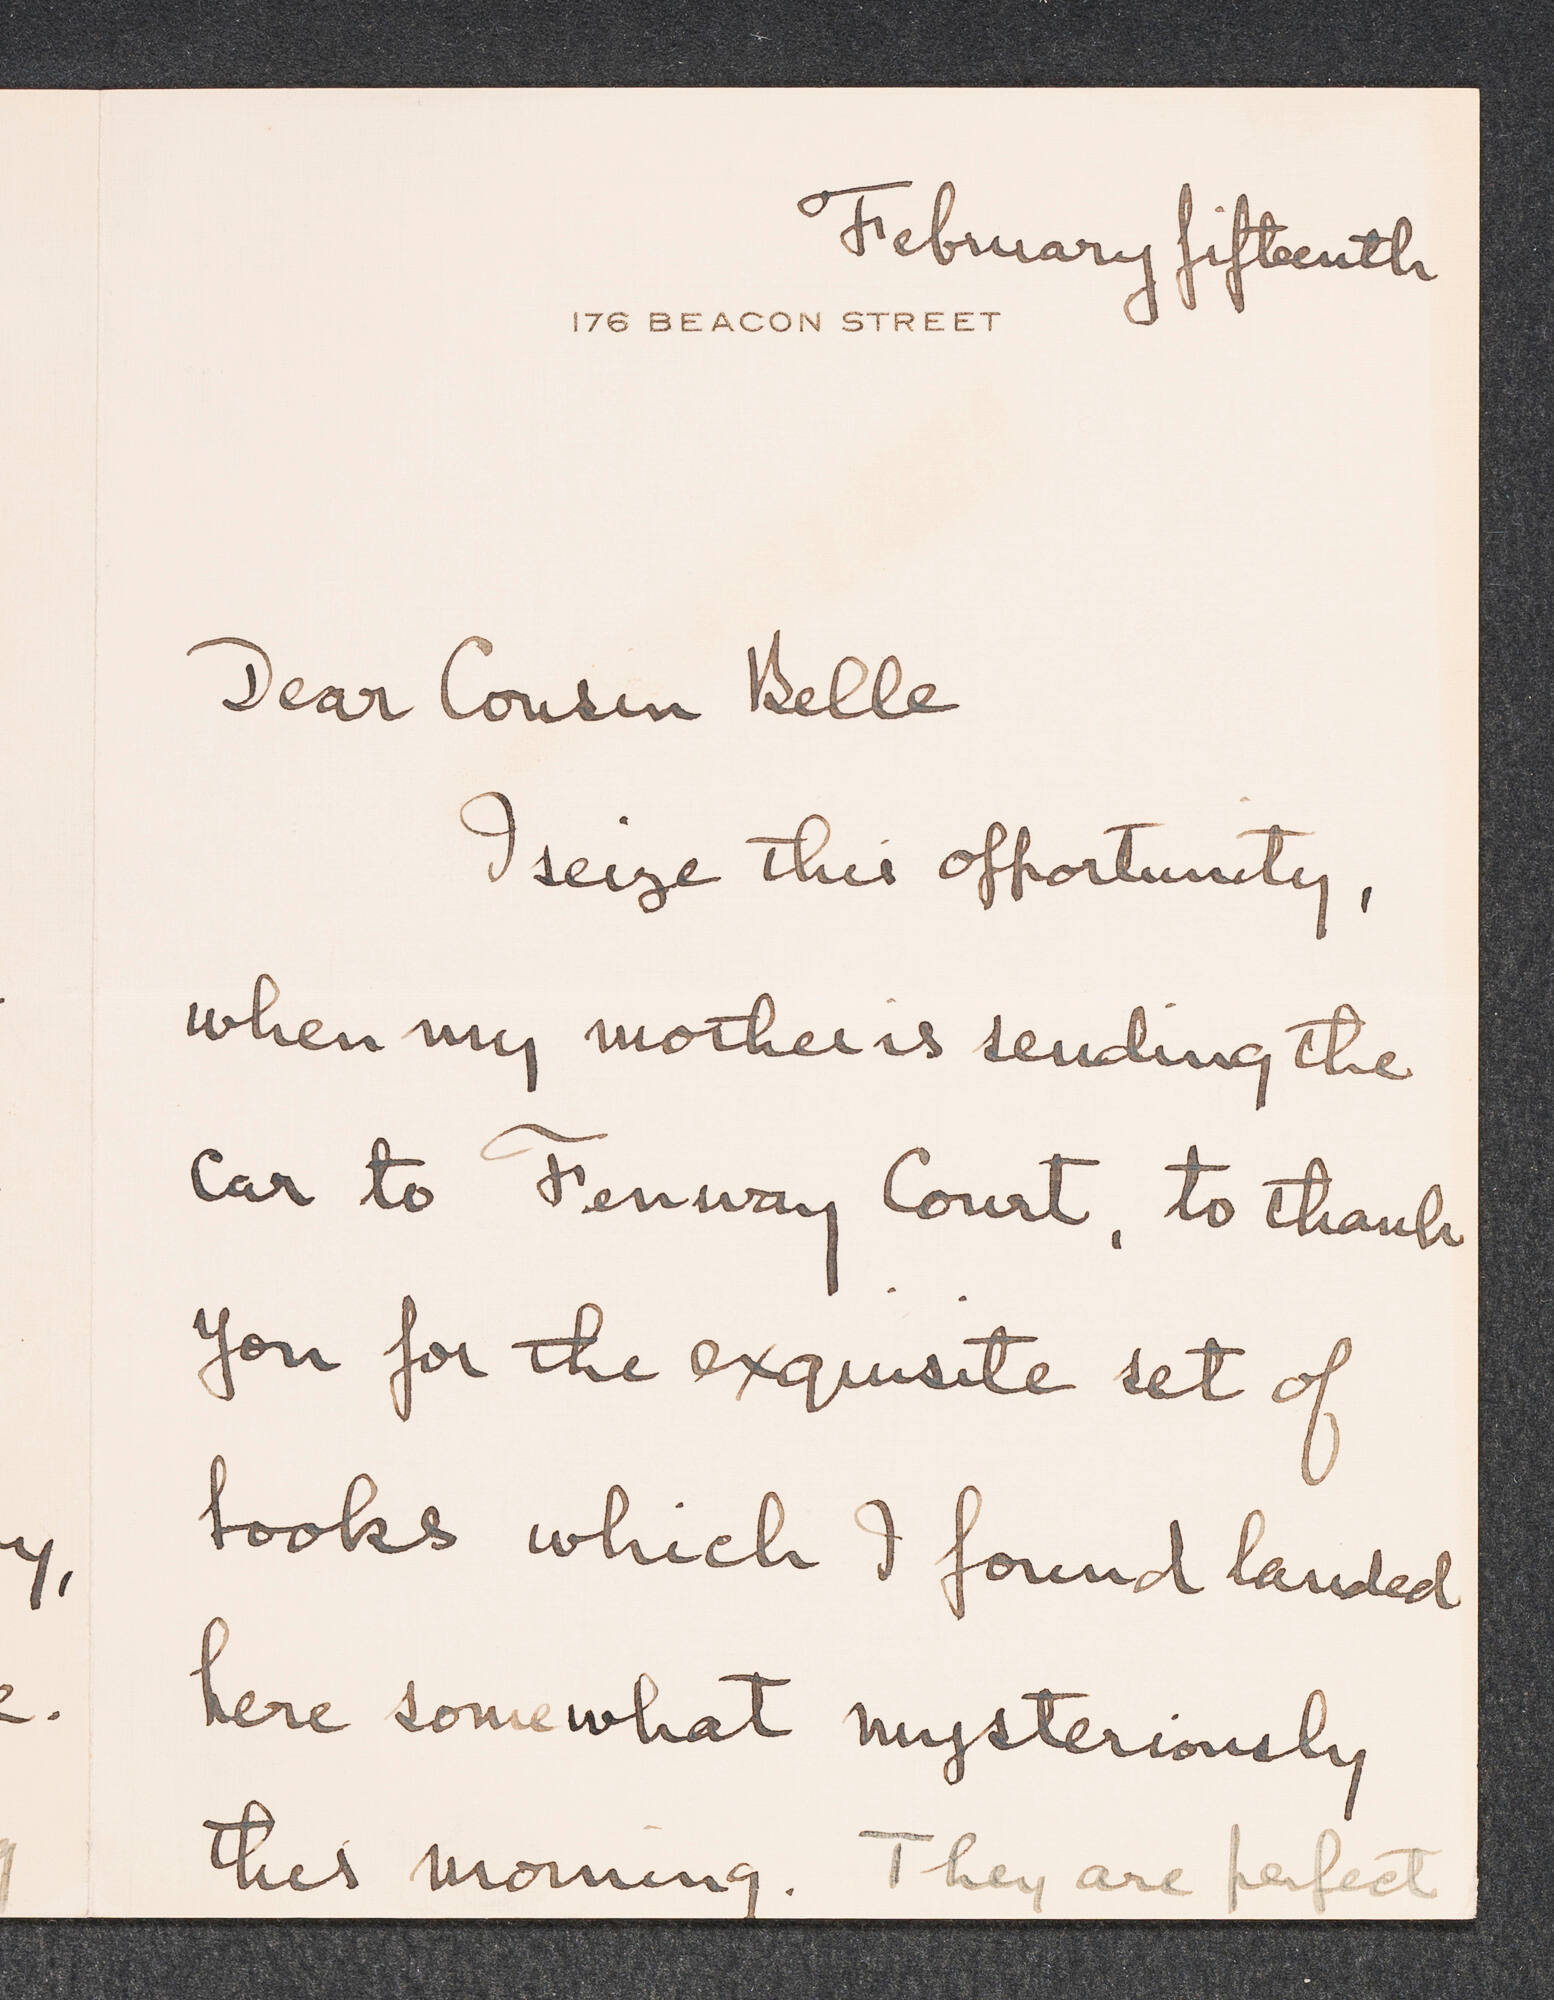 February fifteenth
176 BEACON STREET
Dear Cousin Belle
I seize this opportunity,
when my mother is sending the
car to Fenway Court, to thank
you for the exquisite set of
books which I found landed
here somewhat mysteriously
this morning. They are perfect